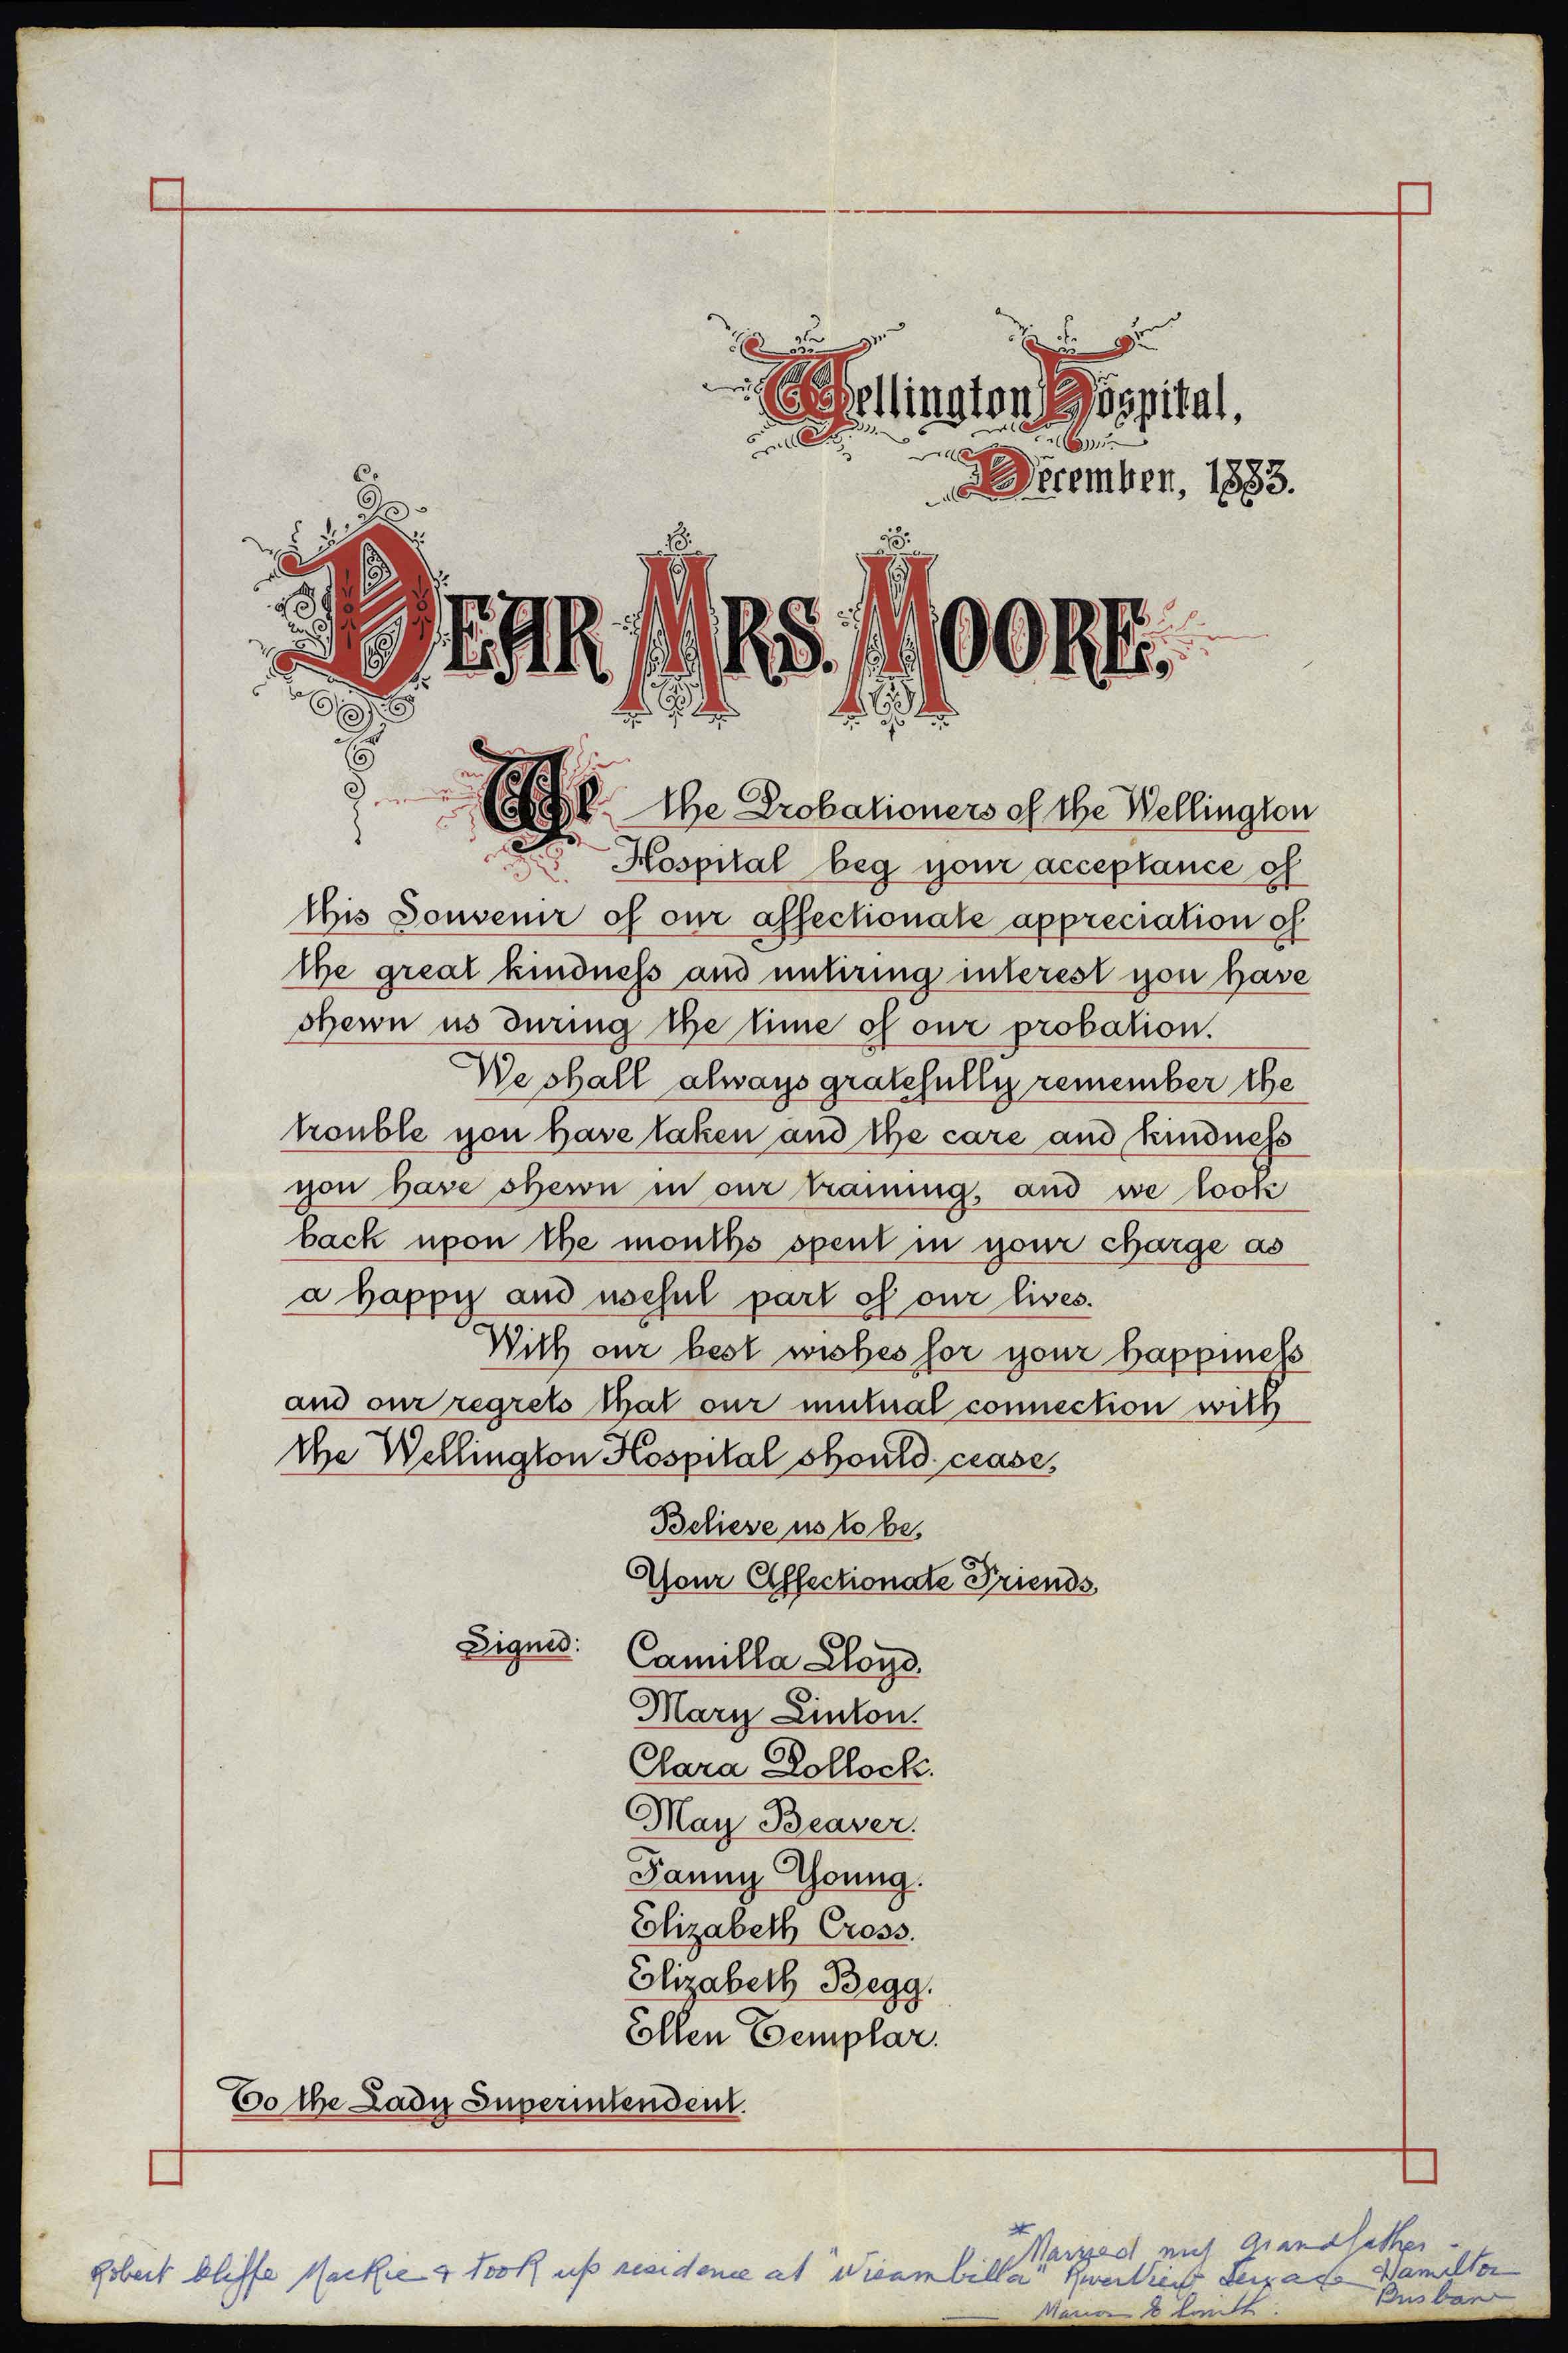 Wellington Hospital,
December, 1883.
DEAR MRS. MOORE,
We the Probationers of the Wellington
Hospital beg your acceptance of
this Souvenir of our affectionate appreciation of
the great kindness and untiring interest you have
shewn us during the time of our probation.
We shall always gratefully remember the
trouble you have taken and the care and kindness
you have shewn in our training, and we look
back upon the months spent in your charge as
a happy and useful part of our lives.
With our best wishes for your happiness
and our regrets that our mutual connection with
the Wellington Hospital should cease,
Believe us to be,
Your Affectionate Friends,
Signed: Camilla Lloyd.
Mary Linton.
Clara Pollock.
May Beaver.
Fanny Young.
Elizabeth Cross.
Elizabeth Begg.
Ellen Templar.
To the Lady Superintendent.
*Married my Grandfather -
Robert Cliffe Mackie & took up residence at "Wieambilla" Riverview Terrace Hamilton
Brisbane
— Marion E Smith.